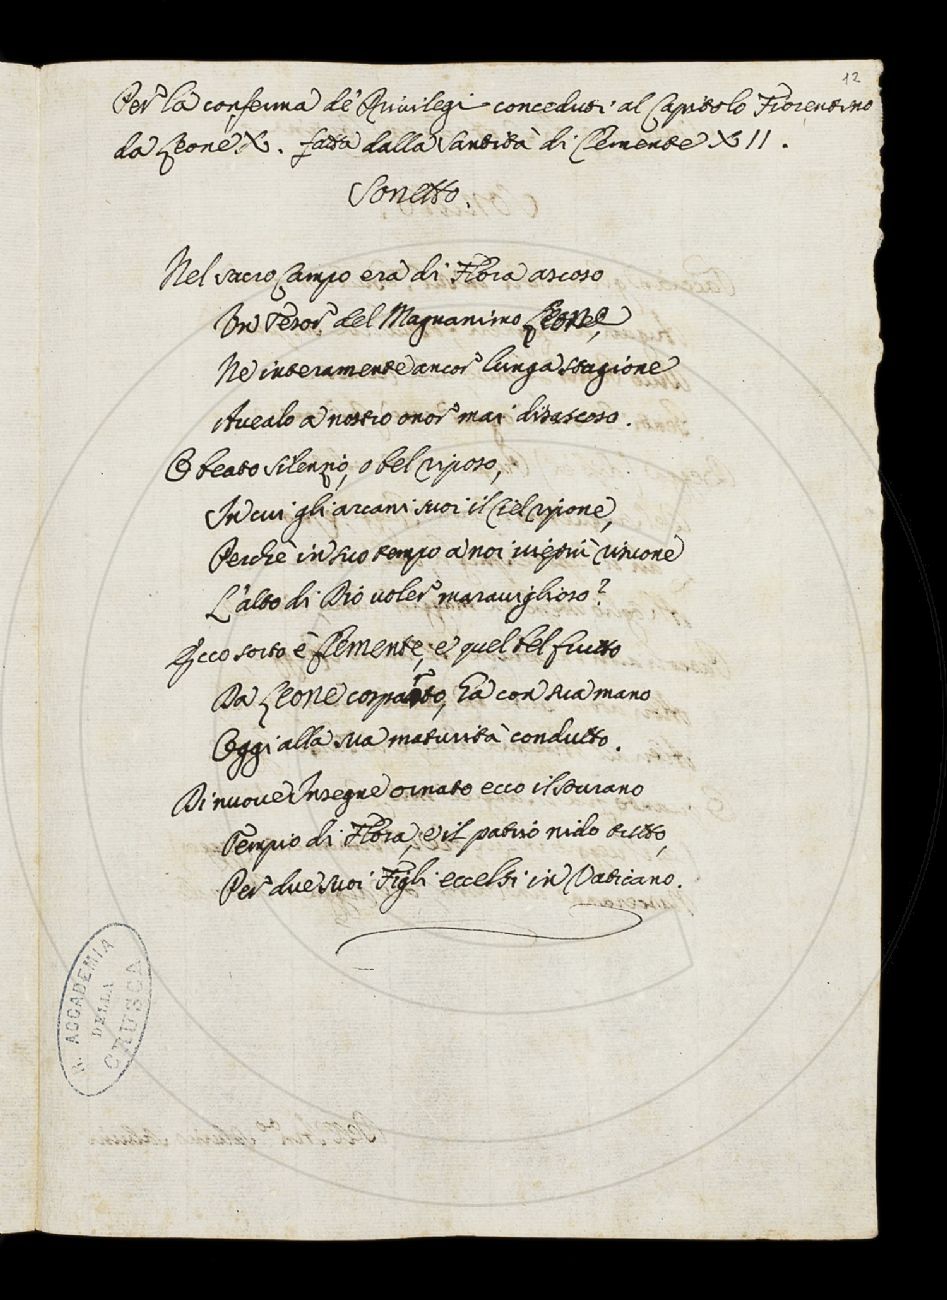 12
Per la conferma de' Privilegi conceduti al Capitolo Fiorentino
da Leone X. fatta dalla Santità di Clemente XII.
Sonetto.
Nel sacro Campo era di Flora ascoso
Un Tesor del Magnanimo Leone,
Ne interamente ancor lunga stagione
Avealo a nostro onor mai disascoso.
O beato silenzio, o bel riposo,
In cui gli arcani suoi il Ciel ripone,
Perchè in suo tempo a noi vie più risuone
L'alto di Dio voler maraviglioso!
Ecco sorto è Clemente, e quel bel frutto
Da Leone cosparto, Ea con sua mano
Oggi alla sua maturità condutto.
Di nuove Insegne ornato ecco il sovrano
Tempio di Flora, e il patrio nido tutto,
Per due suoi Figli eccelsi in Vaticano.
R. ACCADEMIA
DELLA
CRUSCA